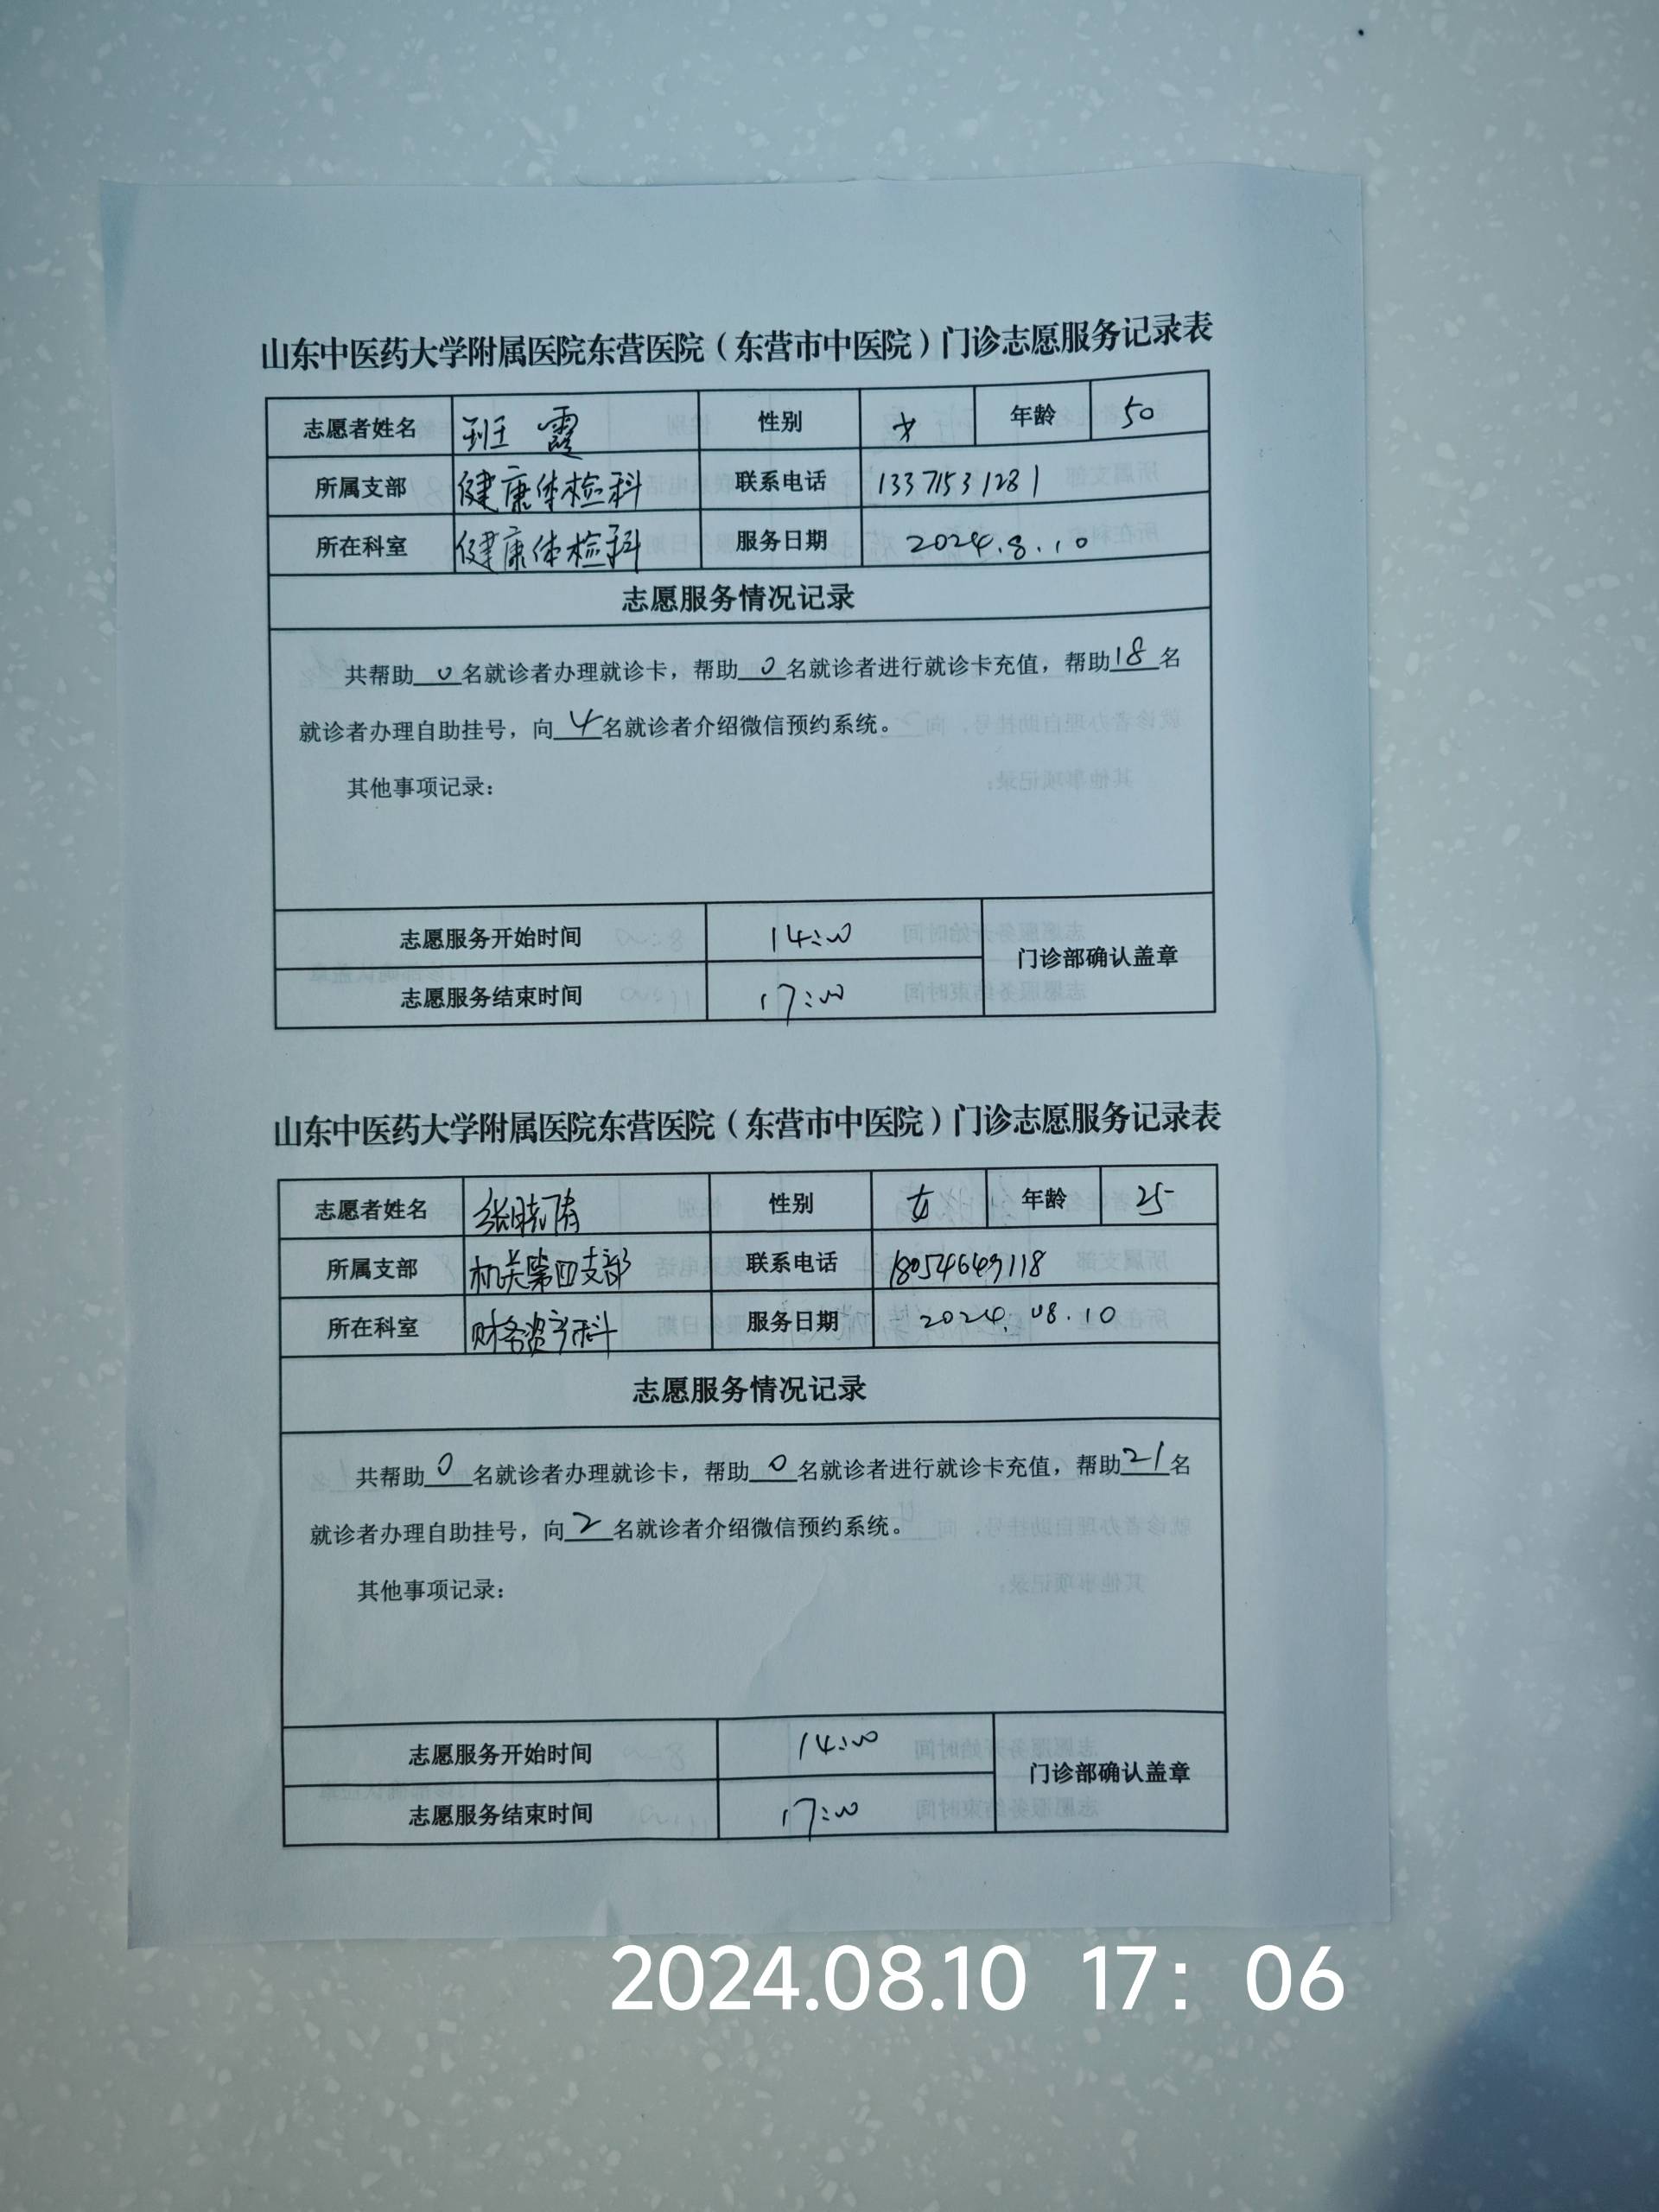 山东中医药大学附属医院东营医院（东营市中医院）门诊志愿服务记录表
志愿者姓名 班霞 性别 女 年龄 50
所属支部 健康体检科 联系电话 13371531281
所在科室 健康体检科 服务日期 2024.8.10
志愿服务情况记录
共帮助0名就诊者办理就诊卡，帮助0名就诊者进行就诊卡充值，帮助18名
就诊者办理自助挂号，向4名就诊者介绍微信预约系统。
其他事项记录：
志愿服务开始时间 14:00
门诊部确认盖章
志愿服务结束时间 17:00
山东中医药大学附属医院东营医院（东营市中医院）门诊志愿服务记录表
志愿者姓名 张晓倩 性别 女 年龄 25
所属支部 机关第四支部 联系电话 18054649118
所在科室 财务资产科 服务日期 2024.08.10
志愿服务情况记录
共帮助0名就诊者办理就诊卡，帮助0名就诊者进行就诊卡充值，帮助21名
就诊者办理自助挂号，向2名就诊者介绍微信预约系统。
其他事项记录：
志愿服务开始时间 14:00
门诊部确认盖章
志愿服务结束时间 17:00
2024.08.10 17：06